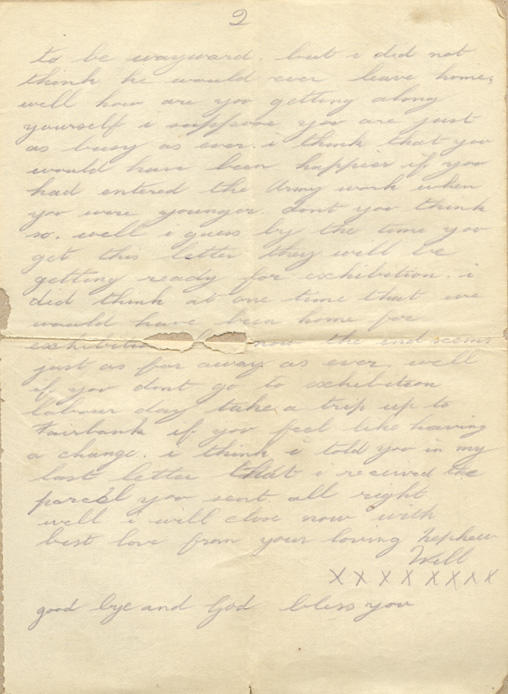 2
to be wayward. but i did not
think he would ever leave home,
well how are you getting along
yourself i suppose you are just
as busy as ever. i think that you
would have been happier if you
had entered the Army work when
you were younger. dont you think
so. well i guess by the time you
get this letter they will be
getting ready for exhibition. i
did think at one time that we
would have been home for
exhibition now the end seems
just as far away as ever. well
if you dont go to exhibition
labour day take a trip up to
Fairbank if you feel like having
a change. i think i told you in my
last letter that i received the
parcel you sent all right
well i will close now with
best love from your loving Nephew
Will
X X X X X X X X
good bye and God bless you